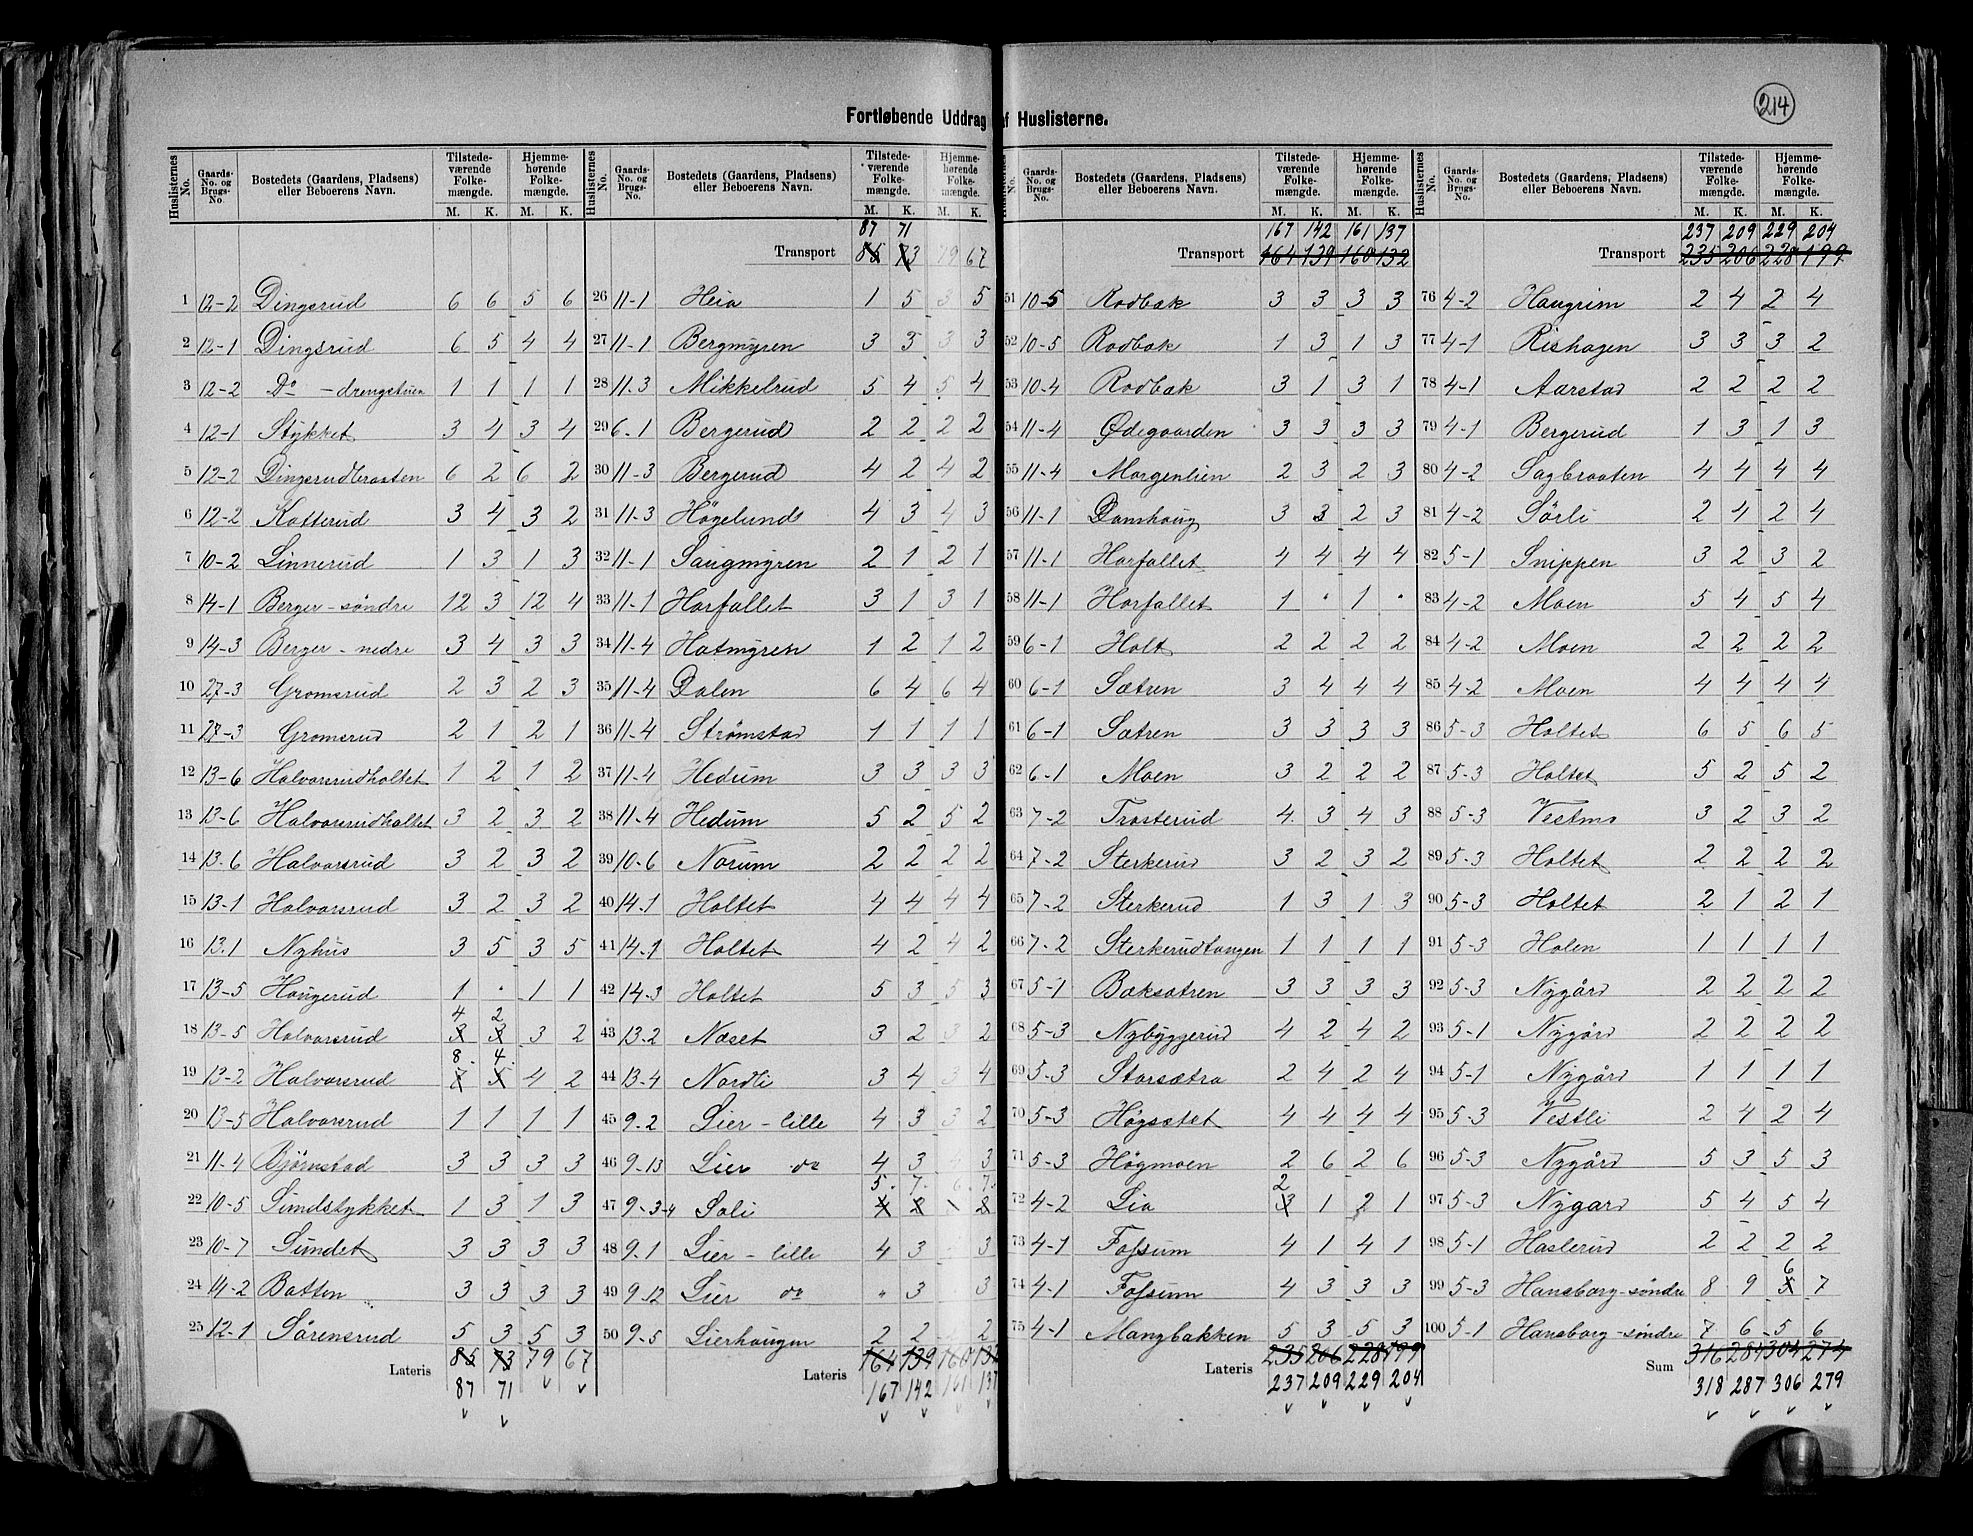 214
Fortløbende Uddrag af Huslisterne.
Huslisternes No. Gaards-No. og Brugs-No. Bostedets (Gaardens, Pladsens) eller Beboerens Navn. Tilstedeværende Folkemængde. M. K. Hjemmehørende Folkemængde. M. K.
1 12-2 Dingsrud 6 6 5 6
2 12-1 Dingsrud 6 5 4 4
3 12-2 Do - drengstuen 1 1 1 1
4 12-1 Stykket 3 4 3 4
5 12-2 Dingsrudbraaten 6 2 6 2
6 12-2 Kotterud 3 4 3 2
7 10-2 Linnerud 1 3 1 3
8 14-1 Berger - søndre 12 3 12 4
9 14-3 Berger - nedre 3 4 3 3
10 27-3 Gromsrud 2 3 2 3
11 27-3 Gromsrud 2 1 2 1
12 13-6 Halvorsrudholtet 1 2 1 2
13 13-6 Halvorsrudholtet 3 2 3 2
14 13-6 Halvorsrud 3 2 3 2
15 13-1 Halvorsrud 3 2 3 2
16 13.1 Nyhus 3 5 3 5
17 13-5 Haugerud 1 · 1 1
4 2
18 13-5 Halvorsrud 3 3 3 2
8. 4.
19 13-2 Halvorsrud 7 5 4 2
20 13-5 Halvorsrud 1 1 1 1
21 11-4 Bjørnstad 3 3 3 3
22 10-5 Sundstykket 1 3 1 3
23 10-7 Sundet 3 3 3 3
24 14-2 Batten 3 3 3 3
25 12-1 Sörensrud 5 3 5 3
Lateris 85 73 79 67
87 71
Huslisternes No. Gaards-No. og Brugs-No. Bostedets (Gaardens, Pladsens) eller Beboerens Navn. Tilstedeværende Folkemængde. M. K. Hjemmehørende Folkemængde. M. K.
87 71
Transport 85 73 79 67
26 11-1 Heia 1 5 3 5
27 11-1 Bergmyren 3 3 3 3
28 11.3 Mikkelrud 5 4 5 4
29 6-1 Bergerud 2 2 2 2
30 11-3 Bergerud 4 2 4 2
31 11-3 Högelund 4 3 4 3
32 11-1 Saugmyren 2 1 2 1
33 11-1 Harfallet 3 1 3 1
34 11-4 Hatmyren 1 2 1 2
35 11-4 Dalen 6 4 6 4
36 11-4 Strømstad 1 1 1 1
37 11-4 Hedum 3 3 3 3
38 11-4 Hedum 5 2 5 2
39 10-6 Norum 2 2 2 2
40 14-1 Holtet 4 4 4 4
41 14-1 Holtet 4 2 4 2
42 14-3 Holtet 5 3 5 3
43 13-2 Næset 3 2 3 2
44 13-4 Nordli 3 4 3 4
45 9-2 Lier - lille 4 3 3 2
46 9-13 Lier do 4 3 3
5. 7. 6. 7.
47 9-3-4 Soli 4 8 8
48 9-1 Lier - lille 4 3 3
49 9-12 Lier do · 3 3
50 9-5 Lierhaugen 2 2 2
Lateris 164 139 160 132
167 142 161 137
No. Gaards-No. og Brugs-No. Bostedets (Gaardens, Pladsens) eller Beboerens Navn. Tilstedeværende Folkemængde. M. K. Hjemmehørende Folkemængde. M. K.
167 142 161 137
Transport 164 139 160 132
51 10-5 Rodbak 3 3 3 3
52 10-5 Rodbak 1 3 1 3
53 10-4 Rodbak 3 1 3 1
54 11-4 Ødegaarden 3 3 3 3
55 11-4 Morgenlien 2 3 2 3
56 11-1 Damhaug 3 3 2 3
57 11-1 Harfallet 4 4 4 4
58 11-1 Harfallet 1 · 1 ·
59 6-1 Holt 2 2 2 2
60 6-1 Sætren 3 4 4 4
61 6-1 Sætren 3 3 3 3
62 6-1 Moen 3 2 2 2
63 7-2 Trosterud 4 3 4 3
64 7-2 Sterkerud 3 2 3 2
65 7-2 Sterkerud 1 3 1 3
66 7-2 Sterkerudtangen 1 1 1 1
67 5-1 Baksætren 3 3 3 3
68 5-3 Nybyggerud 4 2 4 2
69 5-3 Storsætra 2 4 2 4
70 5-3 Högsætet 4 4 4 4
71 5-3 Högmoen 2 6 2 6
2
72 4-2 Lia 3 1 2 1
73 4-1 Fossum 4 1 4 1
74 4-1 Fossum 4 3 3 3
75 4-1 Mangbakken 5 3 5 3
Lateris 235 206 228 199
237 209 229 204
Huslisternes No. Gaards-No. og Brugs-No. Bostedets (Gaardens, Pladsens) eller Beboerens Navn. Tilstedeværende Folkemængde. M. K. Hjemmehørende Folkemængde. M. K.
237 209 229 204
Transport 235 206 228 199
76 4-2 Haugrim 2 4 2 4
77 4-1 Rishagen 3 3 3 2
78 4-1 Aarstad 2 2 2 2
79 4-1 Bergerud 1 3 1 3
80 4-2 Sagbraaten 4 4 4 4
81 4-2 Sörli 2 4 2 4
82 5-1 Snippen 3 2 3 2
83 4-2 Moen 5 4 5 4
84 4-2 Moen 2 2 2 2
85 4-2 Moen 4 4 4 4
86 5-3 Holtet 6 5 6 5
87 5-3 Holtet 5 2 5 2
88 5-3 Vestmo 3 2 3 2
89 5-3 Holtet 2 2 2 2
90 5-3 Holtet 2 1 2 1
91 5-3 Holen 1 1 1 1
92 5-3 Nygård 2 2 2 2
93 5-1 Nygård 2 2 2 2
94 5-1 Nygård 1 1 1 1
95 5-3 Vestli 2 4 2 4
96 5-3 Nygård 5 3 5 3
97 5-3 Nygard 5 4 5 4
98 5-1 Haslerud 2 2 2 2
6
99 5-3 Hansborg-søndre 8 9 5 7
100 5-1 Hansborg-søndre 7 6 5 6
Sum 316 284 304 274
318 287 306 279